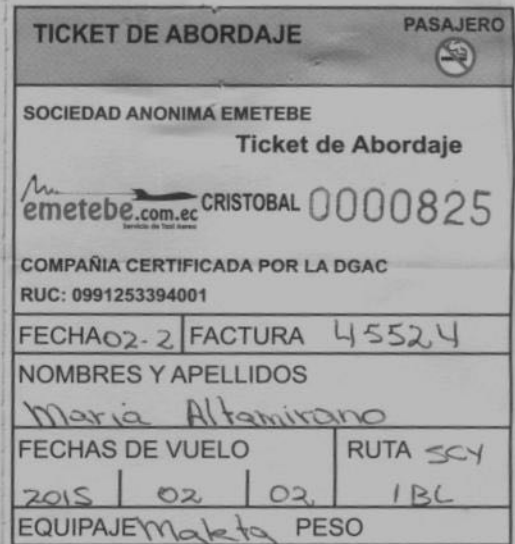 TICKET DE ABORDAJE PASAJERO
SOCIEDAD ANONIMA EMETEBE
Ticket de Abordaje
emetebe.com.ec CRISTOBAL 0000825
Servicio de Taxi Aereo
COMPAÑIA CERTIFICADA POR LA DGAC
RUC: 0991253394001
FECHA 02-2 FACTURA 45524
NOMBRES Y APELLIDOS
Maria Altamirano
FECHAS DE VUELO RUTA SCY
2015 02 02 IBL
EQUIPAJE Maleta PESO